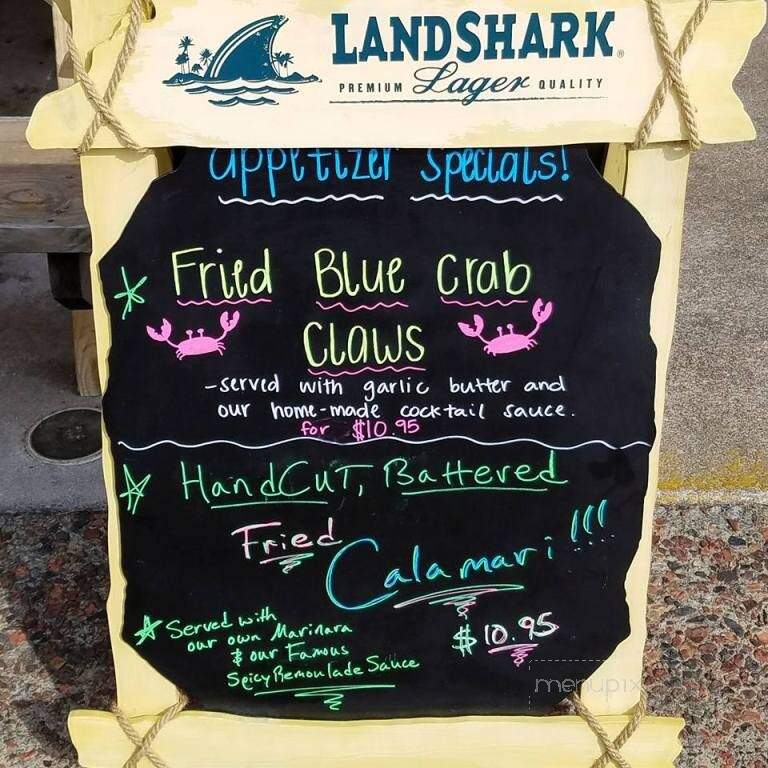 LANDSHARK
PREMIUM Lager QUALITY
appetizer specials!
Fried Blue Crab
Claws
-served with garlic butter and
our home-made cocktail sauce.
for $10.95
HandCut, Battered
Fried
Calamari!!!
Served with
our own Marinara
& our Famous
Spicy Remoulade Sauce
$10.95
menupix